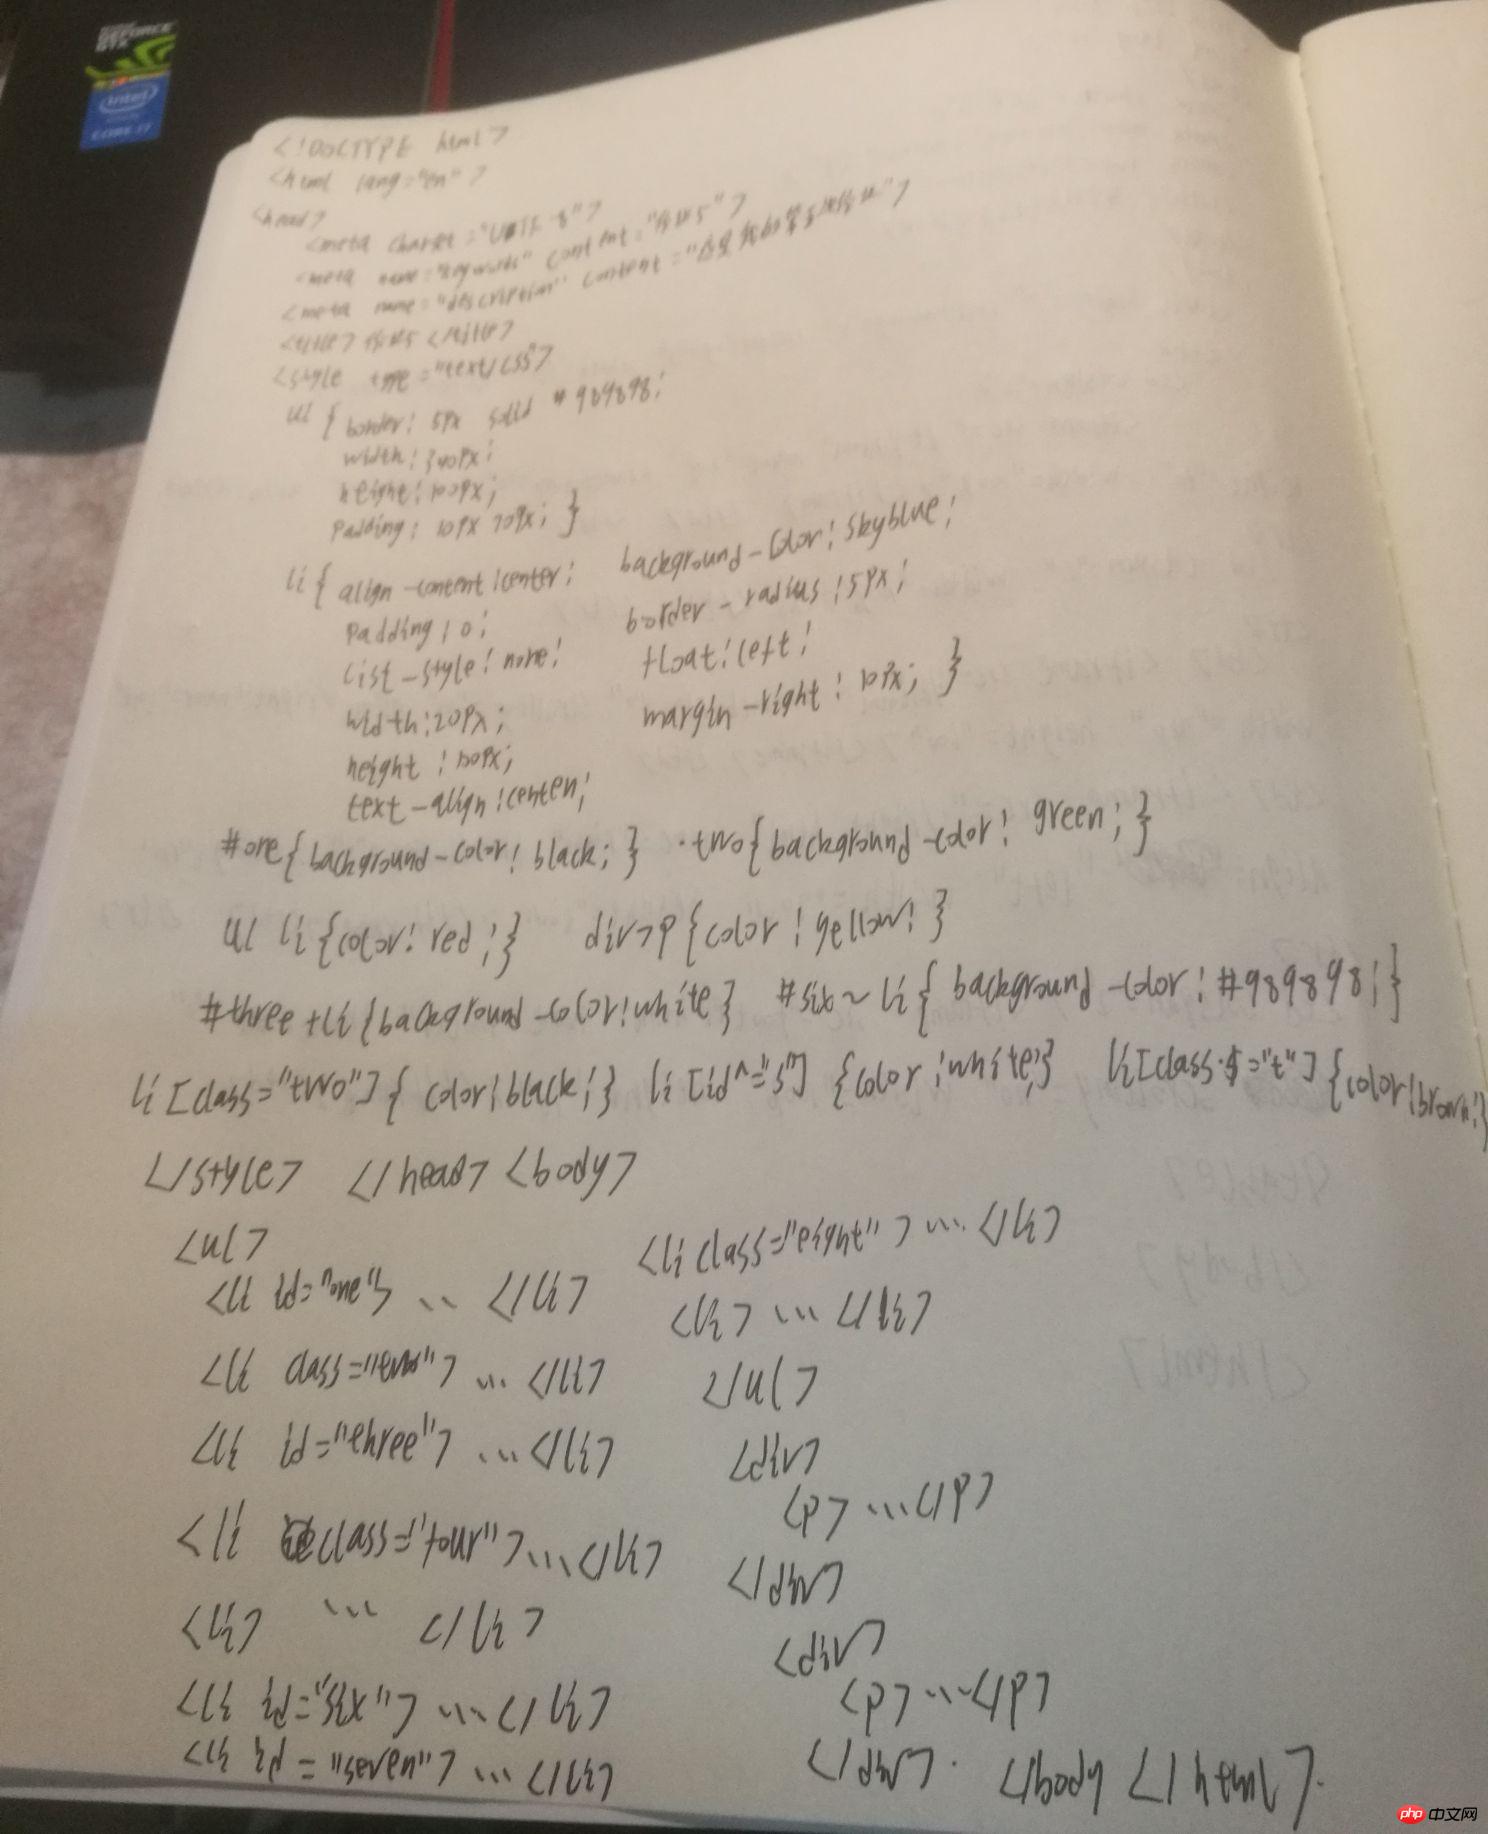 GEFORCE
GTX
intel
CORE i7
<!DOCTYPE html>
<html lang="en">
<head>
<meta charset="UTF-8">
<meta name="keywords" content="作业5">
<meta name="description" content="这是我的第五次作业">
<title>作业5</title>
<style type="text/css">
ul { border: 5px solid #989898;
width: 340px;
height: 100px;
padding: 10px 20px; }
li { align-content: center;
padding: 0;
list-style: none;
width: 20px;
height: 100px;
text-align: center;
background-color: skyblue;
border-radius: 5px;
float: left;
margin-right: 10px; }
#one{background-color: black; } .two{background-color: green; }
ul li {color: red; } div>p {color: yellow; }
#three +li {background-color: white } #six ~ li { background-color: #989898; }
li [class="two"] { color: black; } li [id^="s"] {color: white; } li[class $="t"] {color: brown; }
</style> </head> <body>
<ul>
<li id="one"> ... </li>
<li class="two"> ... </li>
<li id="three"> ... </li>
<li class="four"> ... </li>
<li> ... </li>
<li id="six"> ... </li>
<li id="seven"> ... </li>
<li class="eight"> ... </li>
<li> ... </li>
</ul>
<div>
<p> ... </p>
</div>
<div>
<p> ... </p>
</div>. </body </html>.
php 中文网